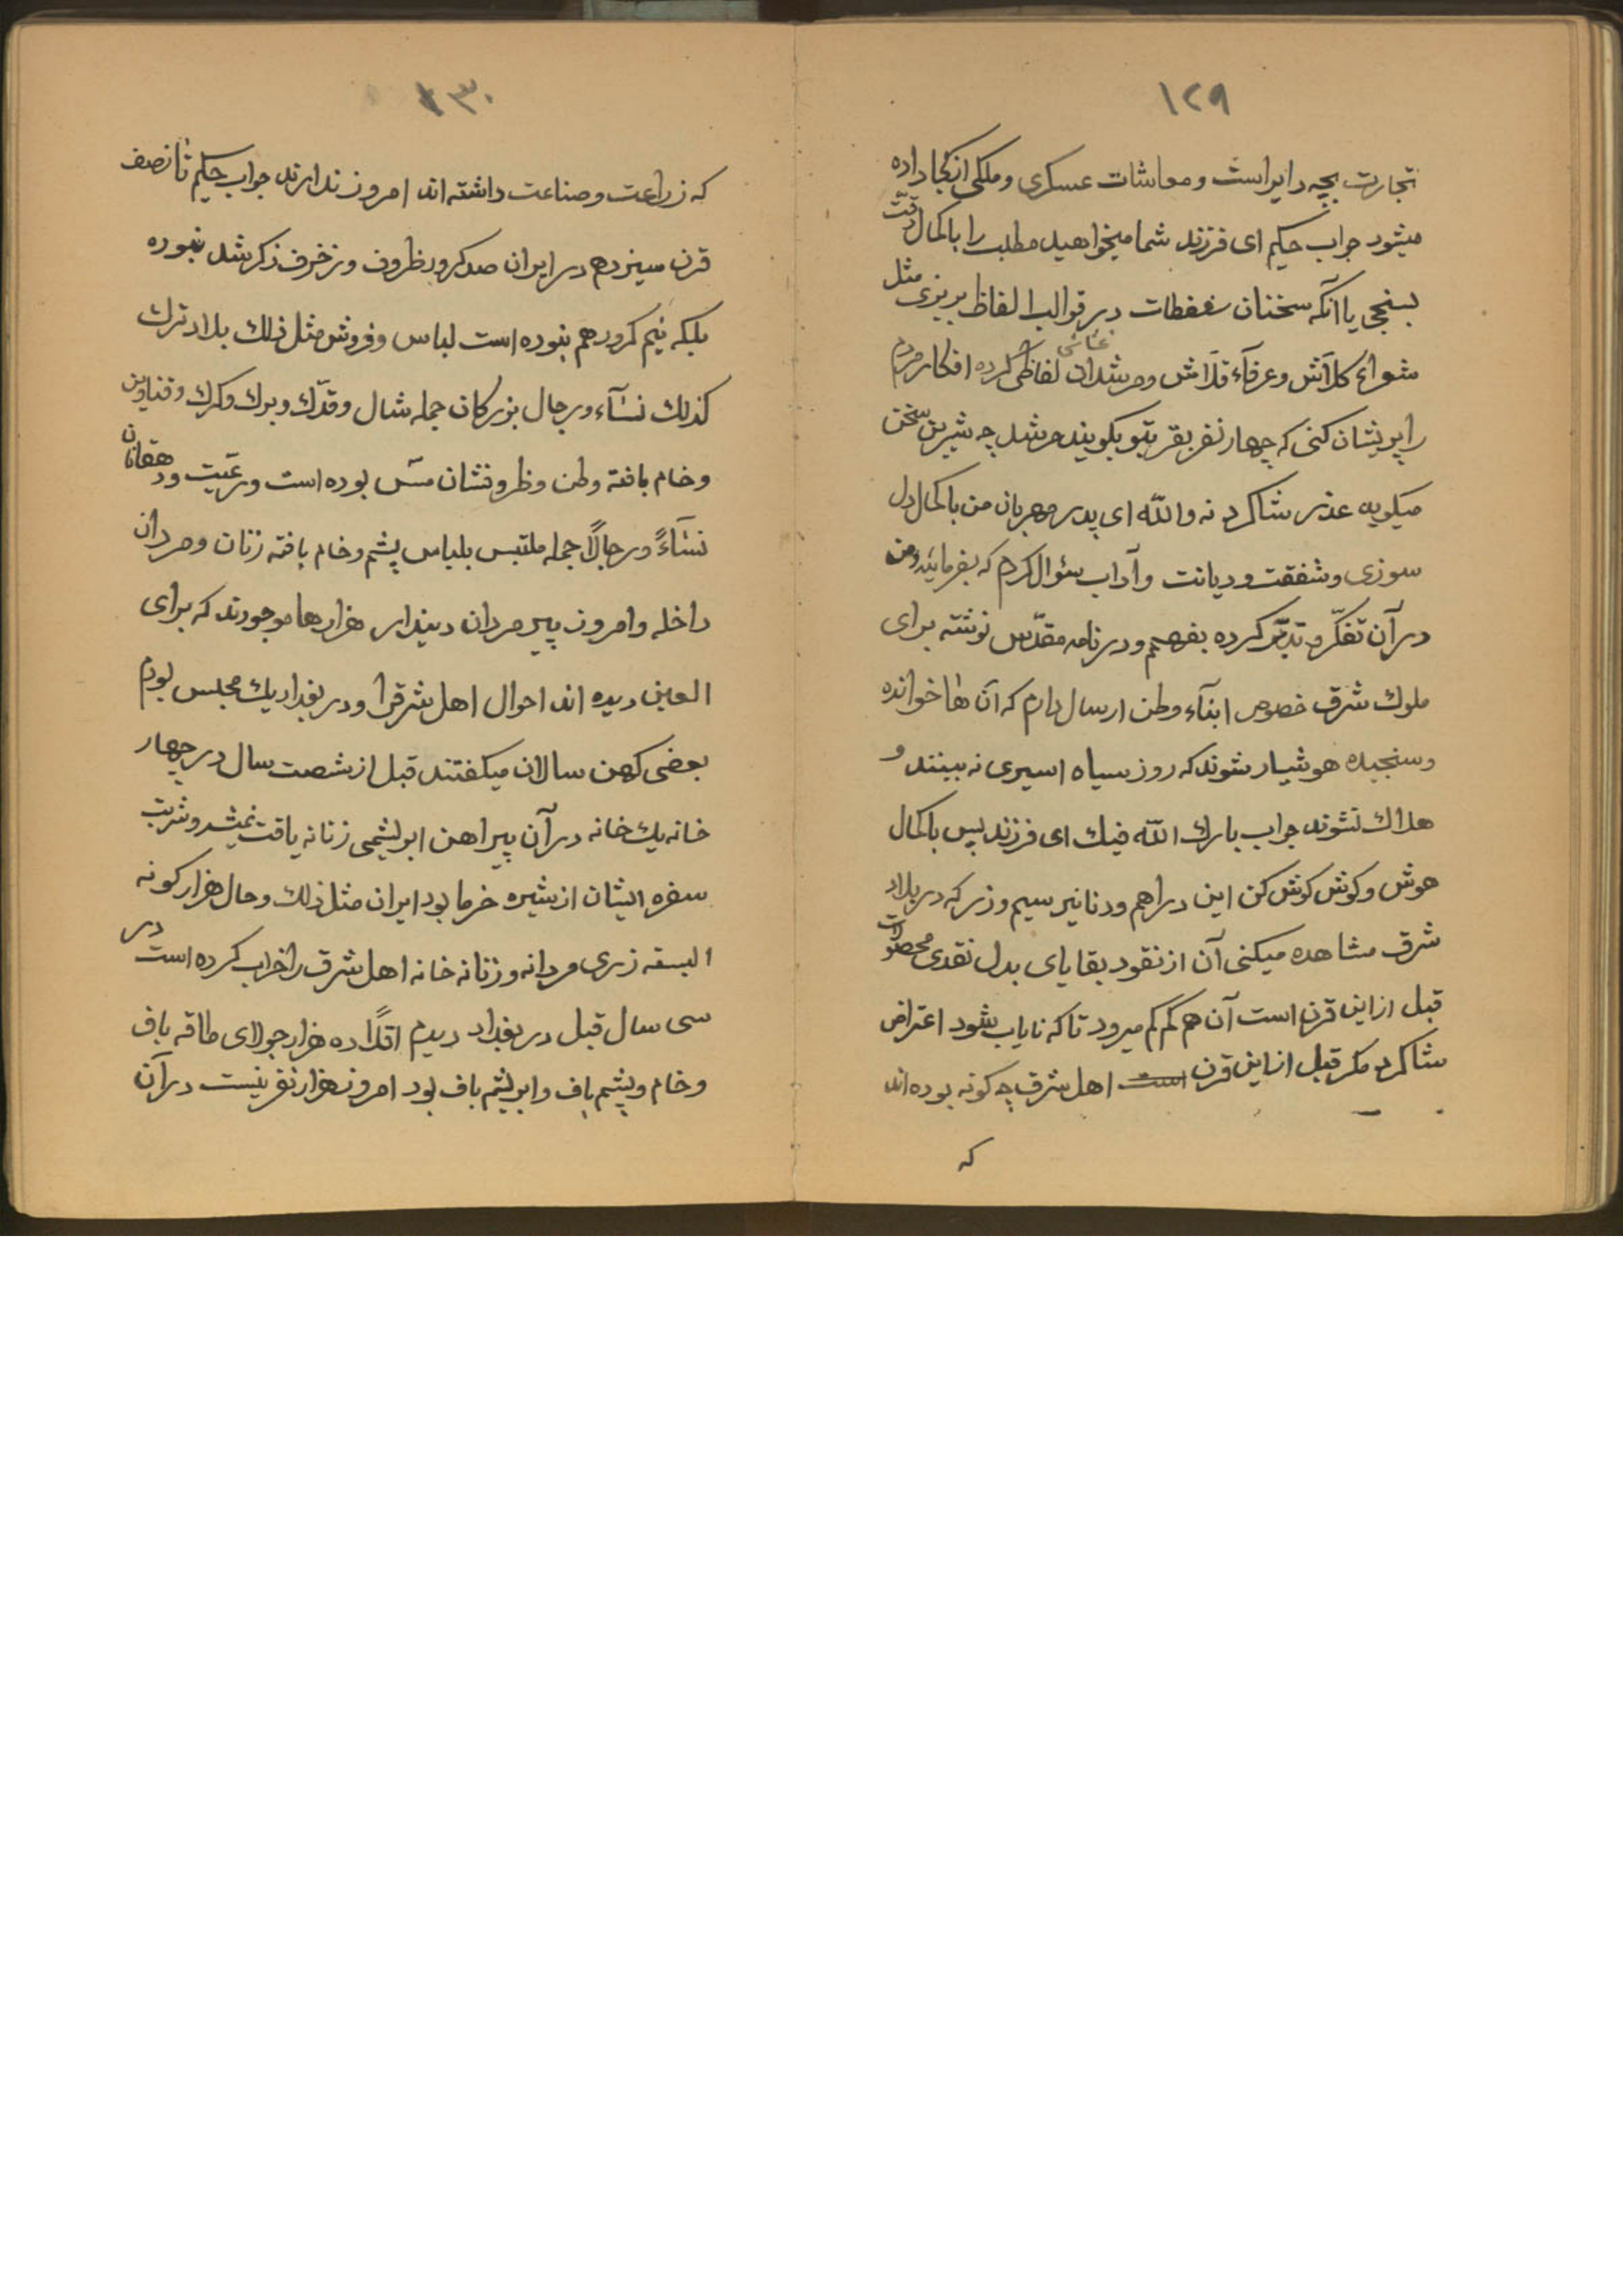 ١٢٩
تجارت بچه دایر است و معاشات عسکری و ملکی از کجا داده
میشود جواب حکیم ای فرزند شما میخواهید مطلب را با کمال دقّت
بسنجی یا آنکه سخنان سفطات در قوالب الفاظ بریزی مثل
شعرآء کلّاش و عرفآء قلّاش و مرشدان لفاظی کرده افکار مردم
را پریشان کنی که چهار نفر بقر بتو بگویند مرشد چه شیرین سخن
میگوید عذر شاکرد نه والله ای پدر مهربان من با کمال دل
سوزی و شفقت و دیانت و آداب سئوال کردم که بفرمائید و من
در آن تفکّر و تدبّر کرده بفهمم و در نامه مقدّس نوشته برای
ملوک شرق خصوص ابنآء وطن ارسال دارم که آن ها خوانده
و سنجیده هوشیار شوند که روز سیاه اسیری نه بینند و
هلاک نشوند جواب بارک الله فیک ای فرزند پس با کمال
هوش و کوش کوش کن این دراهم و دنانیر سیم و زر که در بلاد
شرق مشاهده میکنی آن از نقود بقایای بدل نقدی محصولات
قبل از این قرن است آن هم کم کم میرود تا که نایاب شود اعتراض
شاکرد مکر قبل از این قرن است اهل شرق چه کونه بوده اند
که
١٣٠
که زراعت و صناعت داشته اند امروز ندارند جواب حکیم تا نصف
قرن سیزدهم در ایران صد کرور ظروف و زخرف ذکر شد نبوده
بلکه نیم کرور هم نبوده است لباس و فروش مثل ذلک بلاد ترک
کذلک نسآء و رجال بزرکان جمله شال و قدک و برک و کرک و قناویز
و خام بافته وطن و ظروفشان مس بوده است و رعیت و دهقانان
نسآءً و رجالاً جمله ملتبس بلباس پشم و خام بافته زنان و مردان
داخله و امروز پیر مردان دیندار هزارها موجودند که برای
العین دیده اند احوال اهل شرق را و در بغداد یک مجلس بودم
بعضی کهن سالان میکفتند قبل از شصت سال در چهار
خانه یک خانه در آن پیراهن ابریشمی زنانه یافت نمیشد و شربت
سفره ایشان از شیره خرما بود ایران مثل ذلک و حال هزار کونه
البسه زری مردانه و زنانه خانه اهل شرق را خراب کرده است در
سی سال قبل در بغداد دیدم اقلاً ده هزار جولای طاقه باف
و خام و پشم باف و ابریشم باف بود امروز هزار نفر نیست در آن